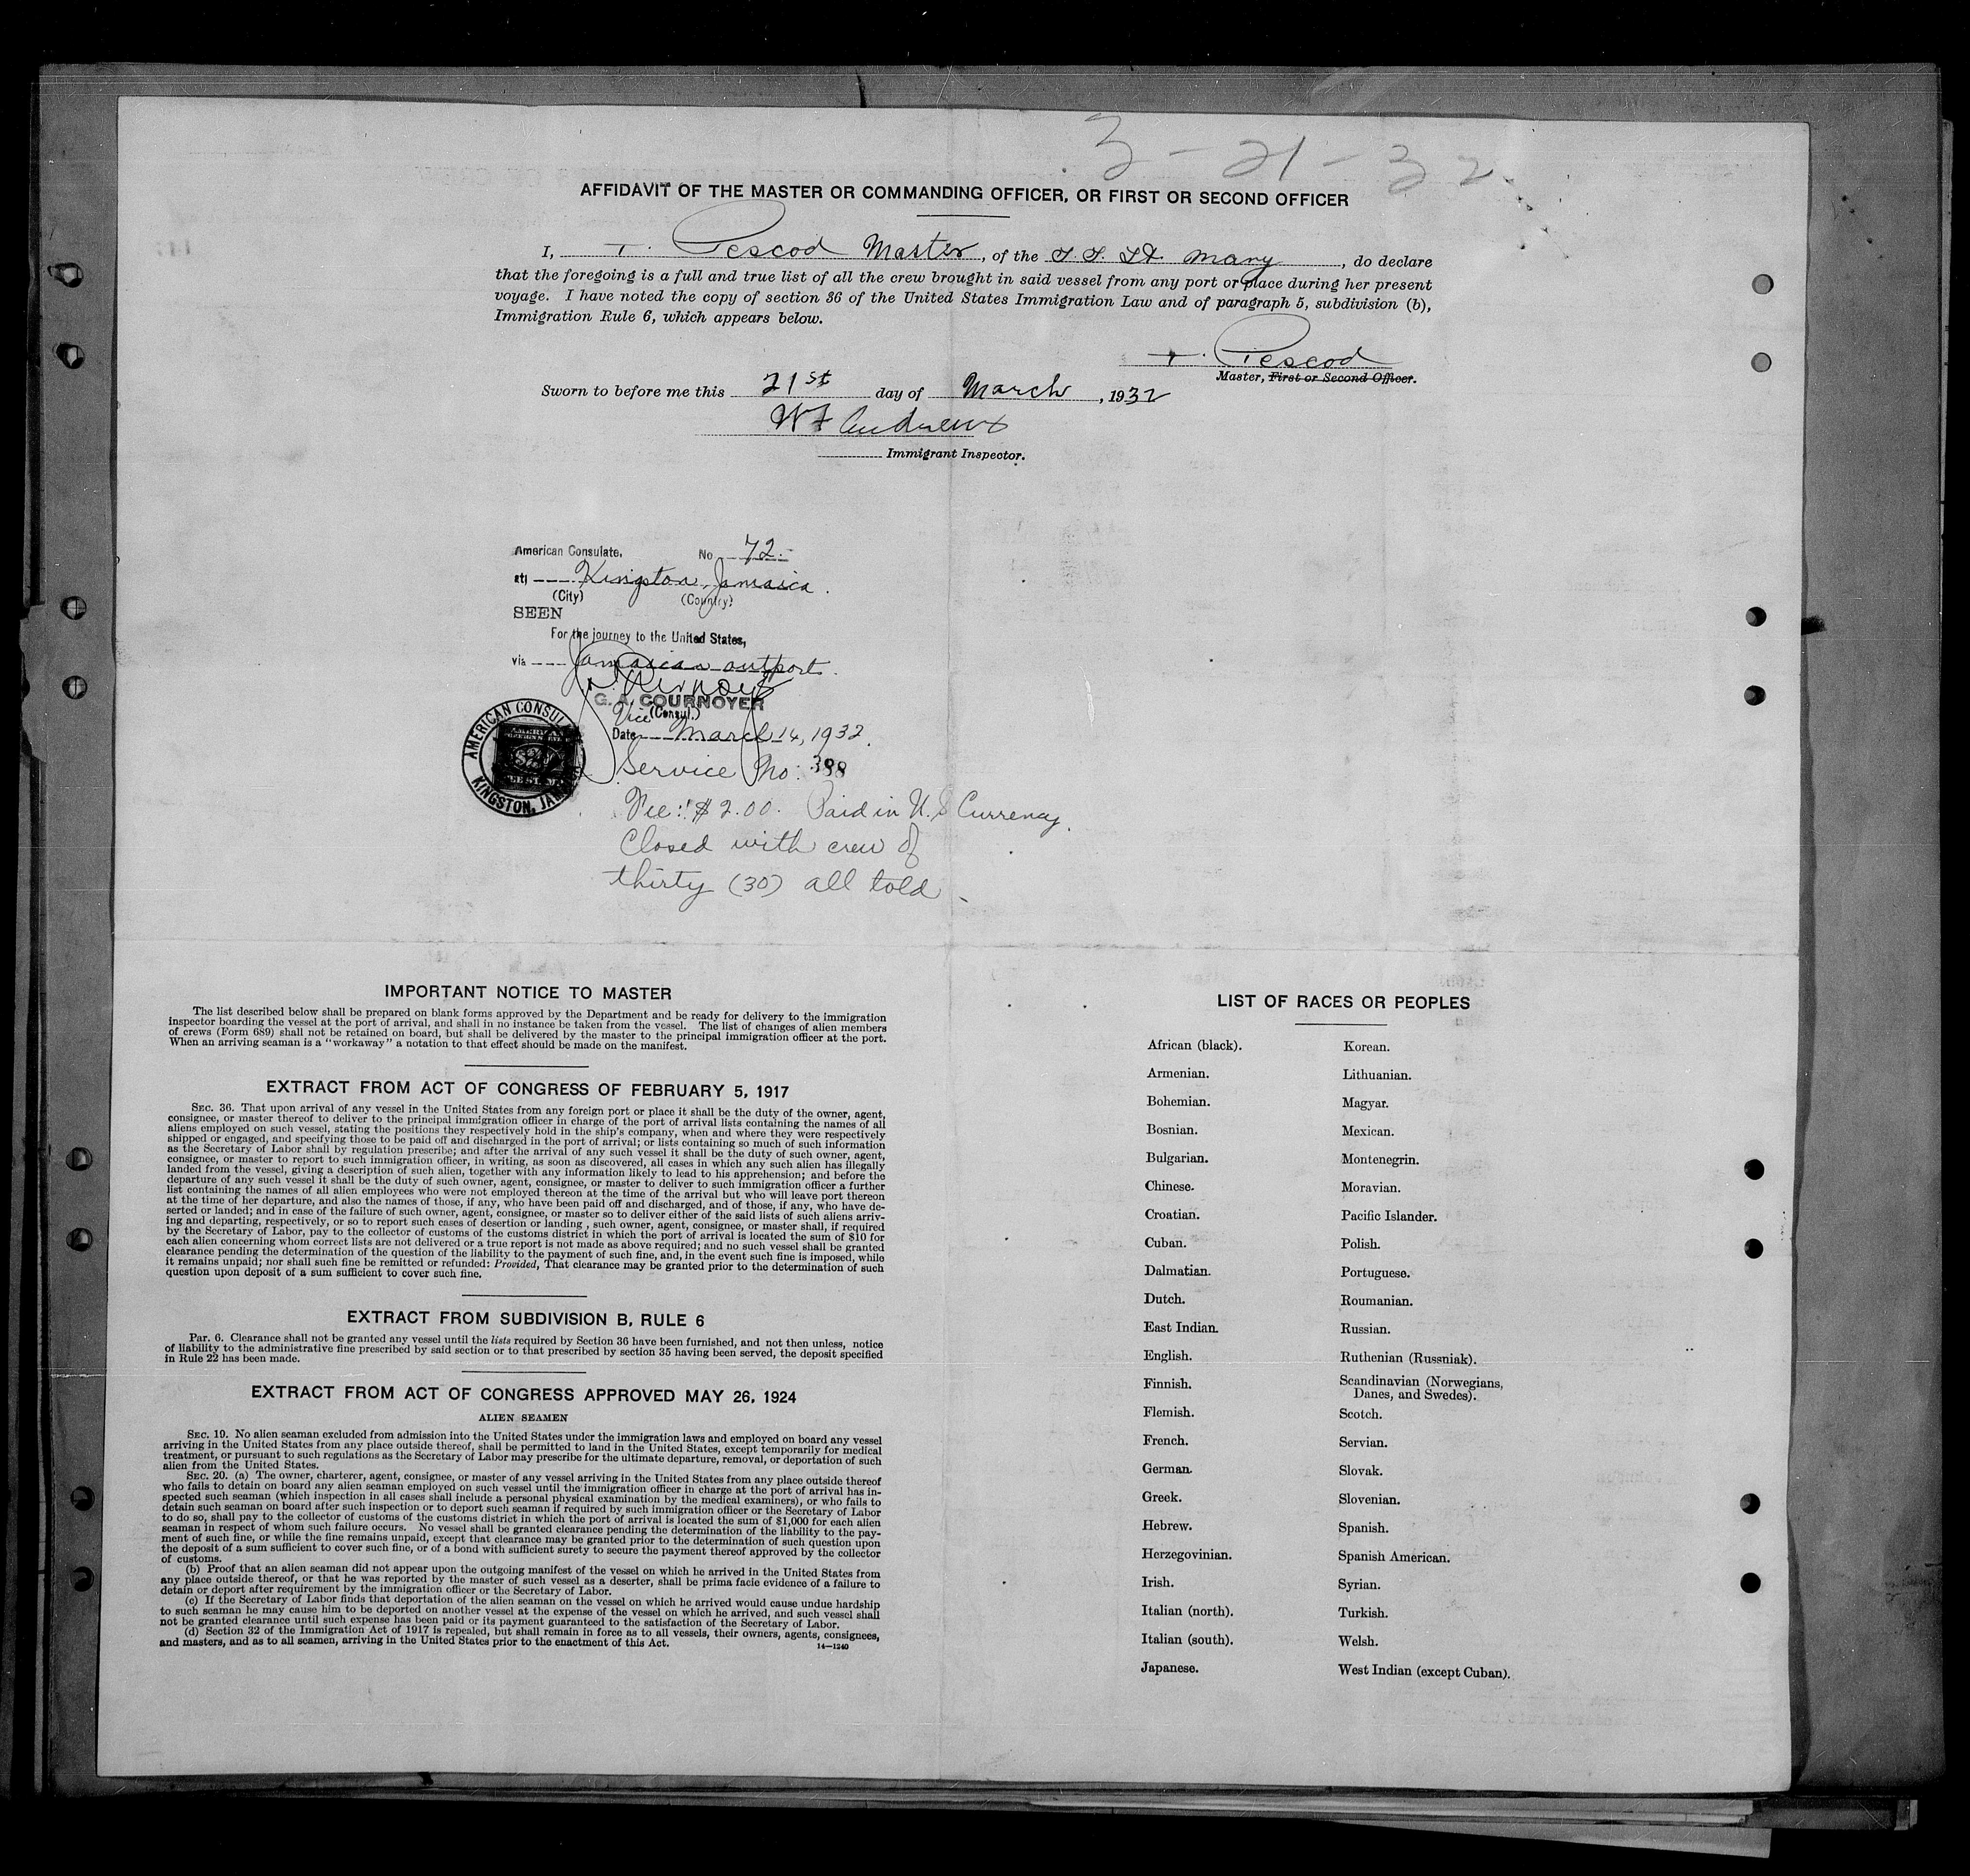 3-21-32
AFFIDAVIT OF THE MASTER OR COMMANDING OFFICER, OR FIRST OR SECOND OFFICER
I, T. Pescod Master, of the S.S. St Mary, do declare
that the foregoing is a full and true list of all the crew brought in said vessel from any port or place during her present
voyage. I have noted the copy of section 36 of the United States Immigration Law and of paragraph 5, subdivision (b),
Immigration Rule 6, which appears below.
T. Pescod
Master, First or Second Officer.
Sworn to before me this 21st day of March, 1932
W F Andrews
Immigrant Inspector.
American Consulate, No 72.-
at Kingston, Jamaica.
(City) (Country)
SEEN
For the journey to the United States,
via Jamaican outport.
G. A. COURNOYER
Vice (Consul.)
Date March 14, 1932.
AMERICAN CONSULATE KINGSTON, JAMAICA
Service No: 398
Fee: $2.00. Paid in U.S Currency.
Closed with crew of
thirty (30) all told
IMPORTANT NOTICE TO MASTER
The list described below shall be prepared on blank forms approved by the Department and be ready for delivery to the immigration
inspector boarding the vessel at the port of arrival, and shall in no instance be taken from the vessel. The list of changes of alien members
of crews (Form 689) shall not be retained on board, but shall be delivered by the master to the principal immigration officer at the port.
When an arriving seaman is a "workaway" a notation to that effect should be made on the manifest.
EXTRACT FROM ACT OF CONGRESS OF FEBRUARY 5, 1917
SEC. 36. That upon arrival of any vessel in the United States from any foreign port or place it shall be the duty of the owner, agent,
consignee, or master thereof to deliver to the principal immigration officer in charge of the port of arrival lists containing the names of all
aliens employed on such vessel, stating the positions they respectively hold in the ship's company, when and where they were respectively
shipped or engaged, and specifying those to be paid off and discharged in the port of arrival; or lists containing so much of such information
as the Secretary of Labor shall by regulation prescribe; and after the arrival of any such vessel it shall be the duty of such owner, agent,
consignee, or master to report to such immigration officer, in writing, as soon as discovered, all cases in which any such alien has illegally
landed from the vessel, giving a description of such alien, together with any information likely to lead to his apprehension; and before the
departure of any such vessel it shall be the duty of such owner, agent, consignee, or master to deliver to such immigration officer a further
list containing the names of all alien employees who were not employed thereon at the time of the arrival but who will leave port thereon
at the time of her departure, and also the names of those, if any, who have been paid off and discharged, and of those, if any, who have de-
serted or landed; and in case of the failure of such owner, agent, consignee, or master so to deliver either of the said lists of such aliens arriv-
ing and departing, respectively, or so to report such cases of desertion or landing, such owner, agent, consignee, or master shall, if required
by the Secretary of Labor, pay to the collector of customs of the customs district in which the port of arrival is located the sum of $10 for
each alien concerning whom correct lists are not delivered or a true report is not made as above required; and no such vessel shall be granted
clearance pending the determination of the question of the liability to the payment of such fine, and, in the event such fine is imposed, while
it remains unpaid; nor shall such fine be remitted or refunded: Provided, That clearance may be granted prior to the determination of such
question upon deposit of a sum sufficient to cover such fine.
EXTRACT FROM SUBDIVISION B, RULE 6
Par. 6. Clearance shall not be granted any vessel until the lists required by Section 36 have been furnished, and not then unless, notice
of liability to the administrative fine prescribed by said section or to that prescribed by section 35 having been served, the deposit specified
in Rule 22 has been made.
EXTRACT FROM ACT OF CONGRESS APPROVED MAY 26, 1924
ALIEN SEAMEN
SEC. 19. No alien seaman excluded from admission into the United States under the immigration laws and employed on board any vessel
arriving in the United States from any place outside thereof, shall be permitted to land in the United States, except temporarily for medical
treatment, or pursuant to such regulations as the Secretary of Labor may prescribe for the ultimate departure, removal, or deportation of such
alien from the United States.
SEC. 20. (a) The owner, charterer, agent, consignee, or master of any vessel arriving in the United States from any place outside thereof
who fails to detain on board any alien seaman employed on such vessel until the immigration officer in charge at the port of arrival has in-
spected such seaman (which inspection in all cases shall include a personal physical examination by the medical examiners), or who fails to
detain such seaman on board after such inspection or to deport such seaman if required by such immigration officer or the Secretary of Labor
to do so, shall pay to the collector of customs of the customs district in which the port of arrival is located the sum of $1,000 for each alien
seaman in respect of whom such failure occurs. No vessel shall be granted clearance pending the determination of the liability to the pay-
ment of such fine, or while the fine remains unpaid, except that clearance may be granted prior to the determination of such question upon
the deposit of a sum sufficient to cover such fine, or of a bond with sufficient surety to secure the payment thereof approved by the collector
of customs.
(b) Proof that an alien seaman did not appear upon the outgoing manifest of the vessel on which he arrived in the United States from
any place outside thereof, or that he was reported by the master of such vessel as a deserter, shall be prima facie evidence of a failure to
detain or deport after requirement by the immigration officer or the Secretary of Labor.
(c) If the Secretary of Labor finds that deportation of the alien seaman on the vessel on which he arrived would cause undue hardship
to such seaman he may cause him to be deported on another vessel at the expense of the vessel on which he arrived, and such vessel shall
not be granted clearance until such expense has been paid or its payment guaranteed to the satisfaction of the Secretary of Labor.
(d) Section 32 of the Immigration Act of 1917 is repealed, but shall remain in force as to all vessels, their owners, agents, consignees,
and masters, and as to all seamen, arriving in the United States prior to the enactment of this Act.
14—1240
LIST OF RACES OR PEOPLES
African (black).
Armenian.
Bohemian.
Bosnian.
Bulgarian.
Chinese.
Croatian.
Cuban.
Dalmatian.
Dutch.
East Indian.
English.
Finnish.
Flemish.
French.
German.
Greek.
Hebrew.
Herzegovinian.
Irish.
Italian (north).
Italian (south).
Japanese.
Korean.
Lithuanian.
Magyar.
Mexican.
Montenegrin.
Moravian.
Pacific Islander.
Polish.
Portuguese.
Roumanian.
Russian.
Ruthenian (Russniak).
Scandinavian (Norwegians,
Danes, and Swedes).
Scotch.
Servian.
Slovak.
Slovenian.
Spanish.
Spanish American.
Syrian.
Turkish.
Welsh.
West Indian (except Cuban).